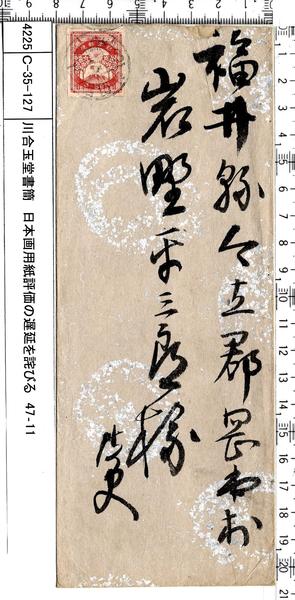 福井縣今立郡岡本村
岩野平三郎様
侍史
A225 C-35-127 川合玉堂書簡 日本画用紙評価の遅延を詫びる 47-11